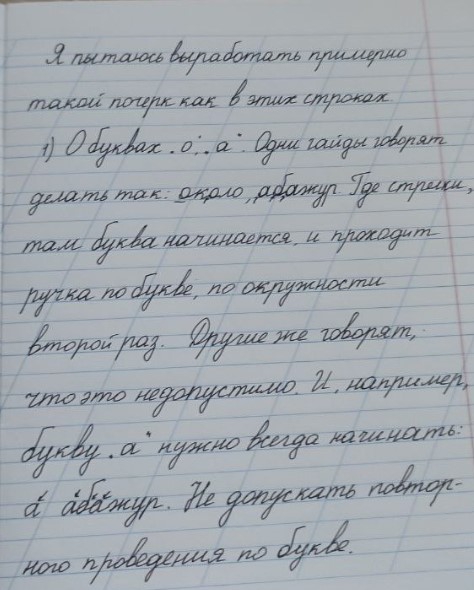 Я пытаюсь выработать примерно
такой почерк как в этих строках
1) О буквах „о", „а". Одни гайды говорят
делать так: около, абажур. Где стрелки,
там буква начинается, и проходит
ручка по букве, по окружности
второй раз. Другие же говорят,
что это недопустимо. И, например,
букву „а" нужно всегда начинать:
а абажур. Не допускать повтор-
ного проведения по букве.